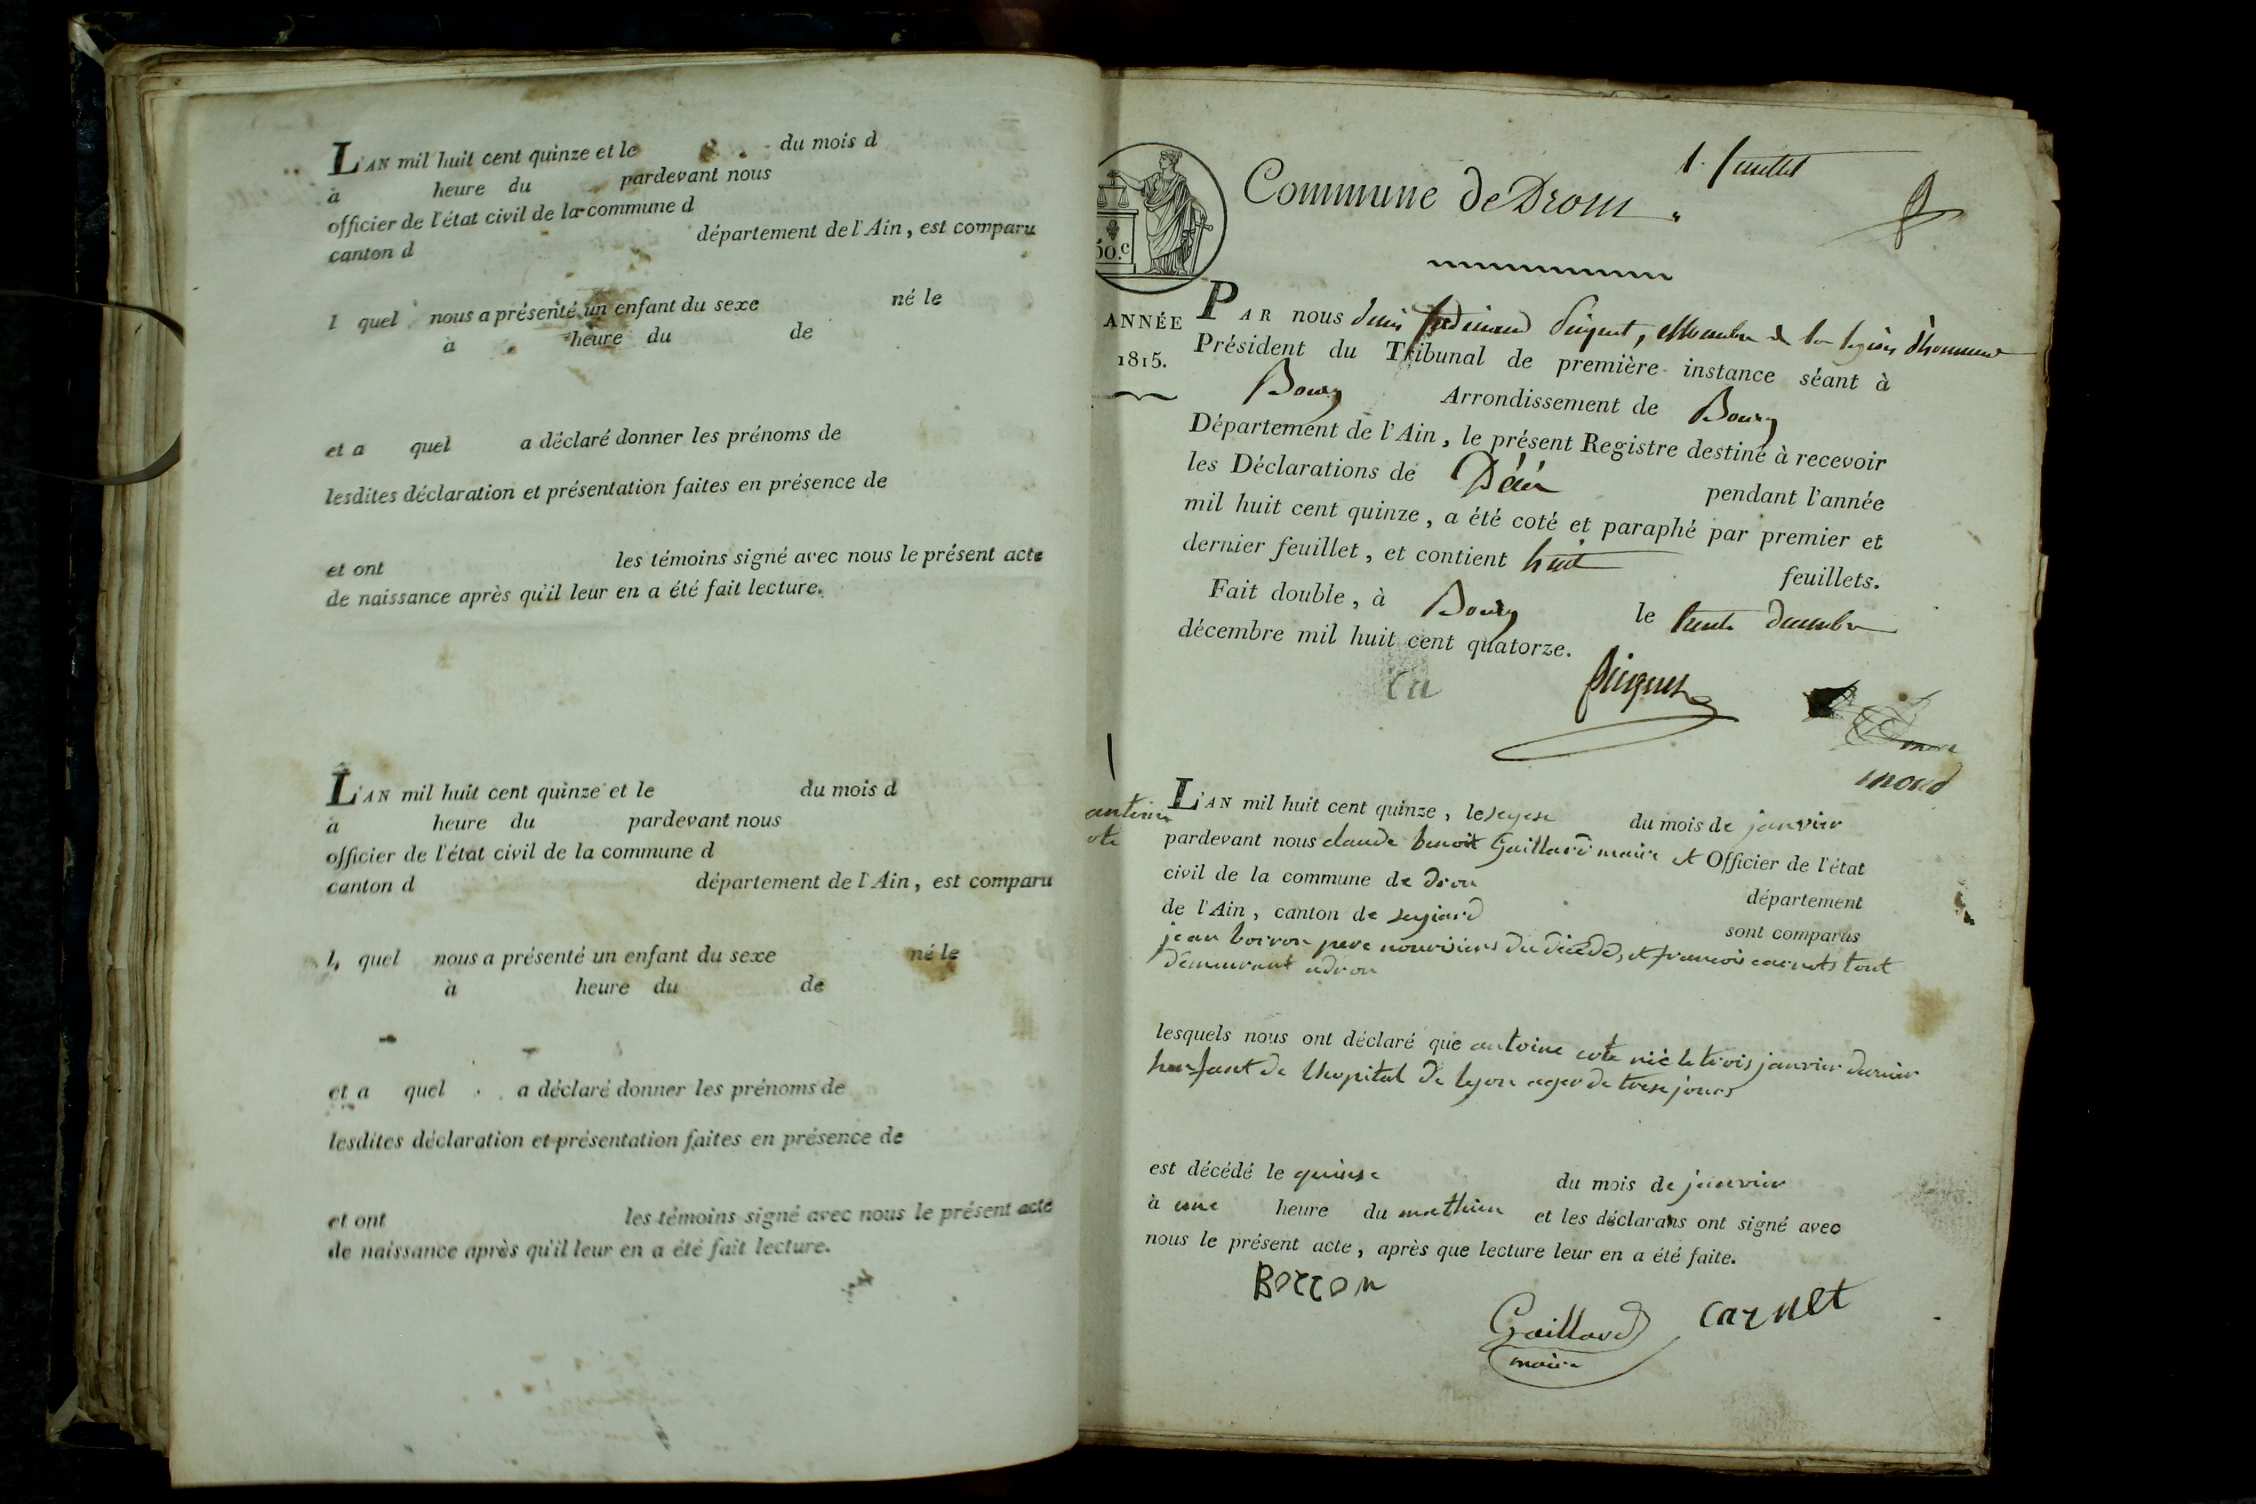 L'AN mil huit cent quinze et le du mois d
à heure du pardevant nous
officier de l'état civil de la commune d
canton d département de l'Ain, est comparu
l quel nous a présenté un enfant du sexe né le
à heure du de
et a quel a déclaré donner les prénoms de
lesdites déclaration et présentation faites en présence de
et ont les témoins signé avec nous le présent acte
de naissance après qu'il leur en a été fait lecture.
L'AN mil huit cent quinze et le du mois d
à heure du pardevant nous
officier de l'état civil de la commune d
canton d département de l'Ain, est comparu
l quel nous a présenté un enfant du sexe né le
à heure du de
et a quel a déclaré donner les prénoms de
lesdites déclaration et présentation faites en présence de
et ont les témoins signé avec nous le présent acte
de naissance après qu'il leur en a été fait lecture.
1. feuillet
Commune de Drom
50.c
ANNÉE
1815.
PAR nous denis ferdinand Picquet, Membre de la legion d'honneur
Président du Tribunal de première instance séant à
Bourg Arrondissement de Bourg
Département de l'Ain, le présent Registre destiné à recevoir
les Déclarations de Décès pendant l'année
mil huit cent quinze, a été coté et paraphé par premier et
dernier feuillet, et contient huit feuillets.
Fait double, à Bourg le trente decembre
décembre mil huit cent quatorze.
Picquet
antoine
cote
L'AN mil huit cent quinze, le seyese du mois de janvier
pardevant nous claude benoit Gaillard maire et Officier de l'état
civil de la commune de dron
département
de l'Ain, canton de seyiard sont comparus
jean boiron pere nourisiers du décédé, et francois carnet tout
demeurant a dron
lesquels nous ont déclaré que antoine cote nié le trois janvier dernier
henfant de lhopital de lyon ager de trese jours
est décédé le quinse du mois de janvier
à une heure du mathien et les déclarans ont signé avec
nous le présent acte, après que lecture leur en a été faite.
BOIRON
Gaillard carnet
maire